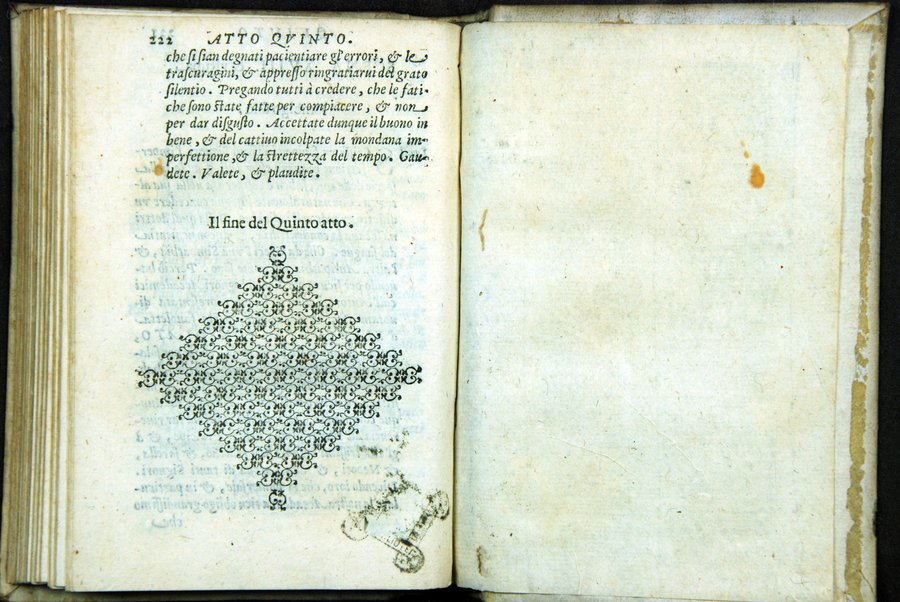 222 ATTO QVINTO.
che si sian degnati pacientiare gl'errori, & le
trascuragini, & appresso ringratiarui del grato
silentio. Pregando tutti à credere, che le fati-
che sono state fatte per compiacere, & non
per dar disgusto. Accettate dunque il buono in
bene, & del cattiuo incolpate la mondana im-
perfettione, & la strettezza del tempo. Gau-
dete. Valete, & plaudite.
Il fine del Quinto atto.